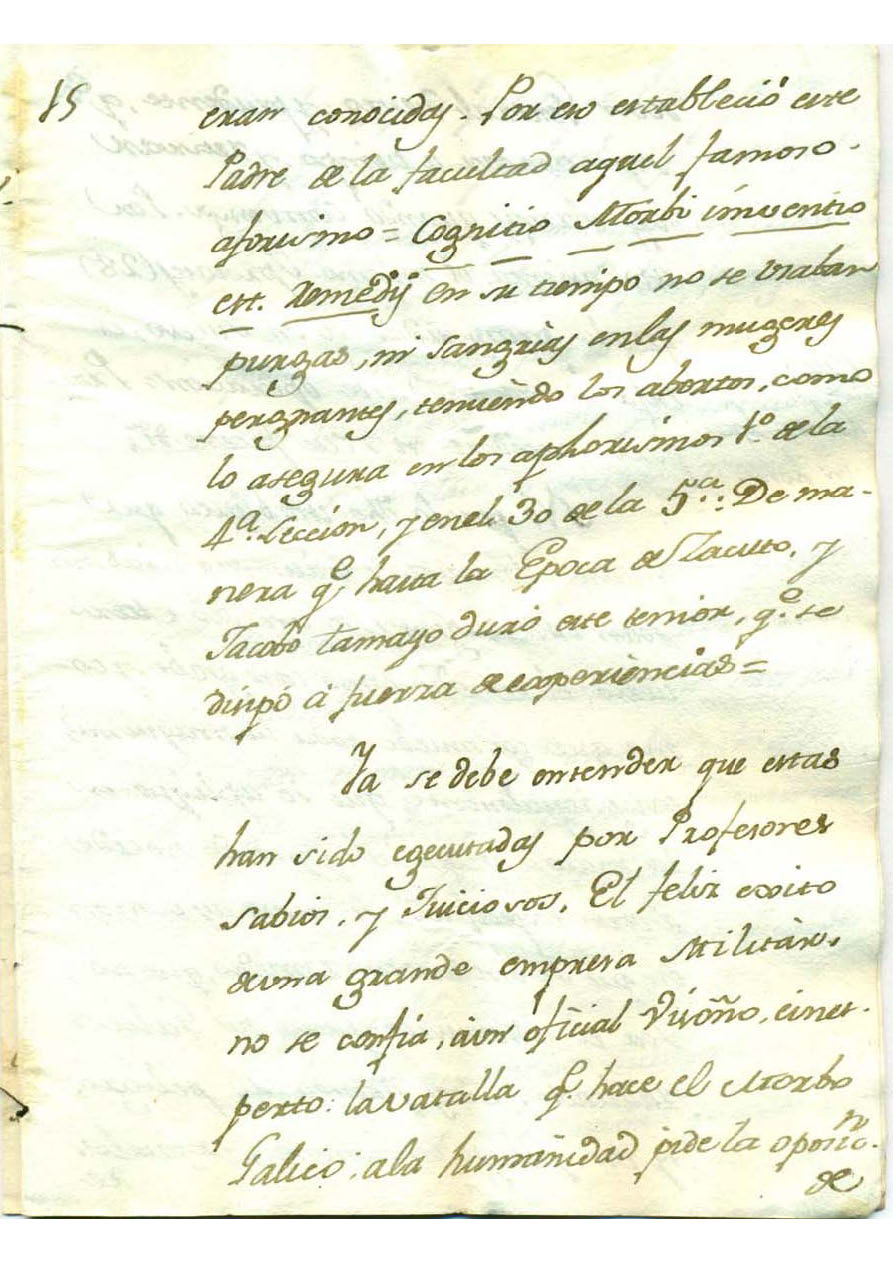 15
eran conocidas. Por eso estableció este
Padre de la facultad aquel famoso.
aforismo = Cognitio Morbi inventio
est. Remedij en su tiempo no se usaban
purgas, ni sangrias en las mugeres
pregnantes, temiendo los abortos, como
lo asegura en los aphorismos 1º. de la
4ª. Seccion, y en el 30 de la 5ª: De ma-
nera qe. hasta la Epoca de Zacuto, y
Jacobo tamayo duró este temor, qe. se
disipó à fuerza de experiencias =
Ya se debe entender que estas
han sido egecutadas por Profesores
sabios, y Juiciosos. El feliz exito
de una grande empresa Militàr.
no se confia, à un oficial Visoño, e inex-
perto: la vatalla qe. hace el Morbo
Galico; a la humanidad pide la oposicn.
de